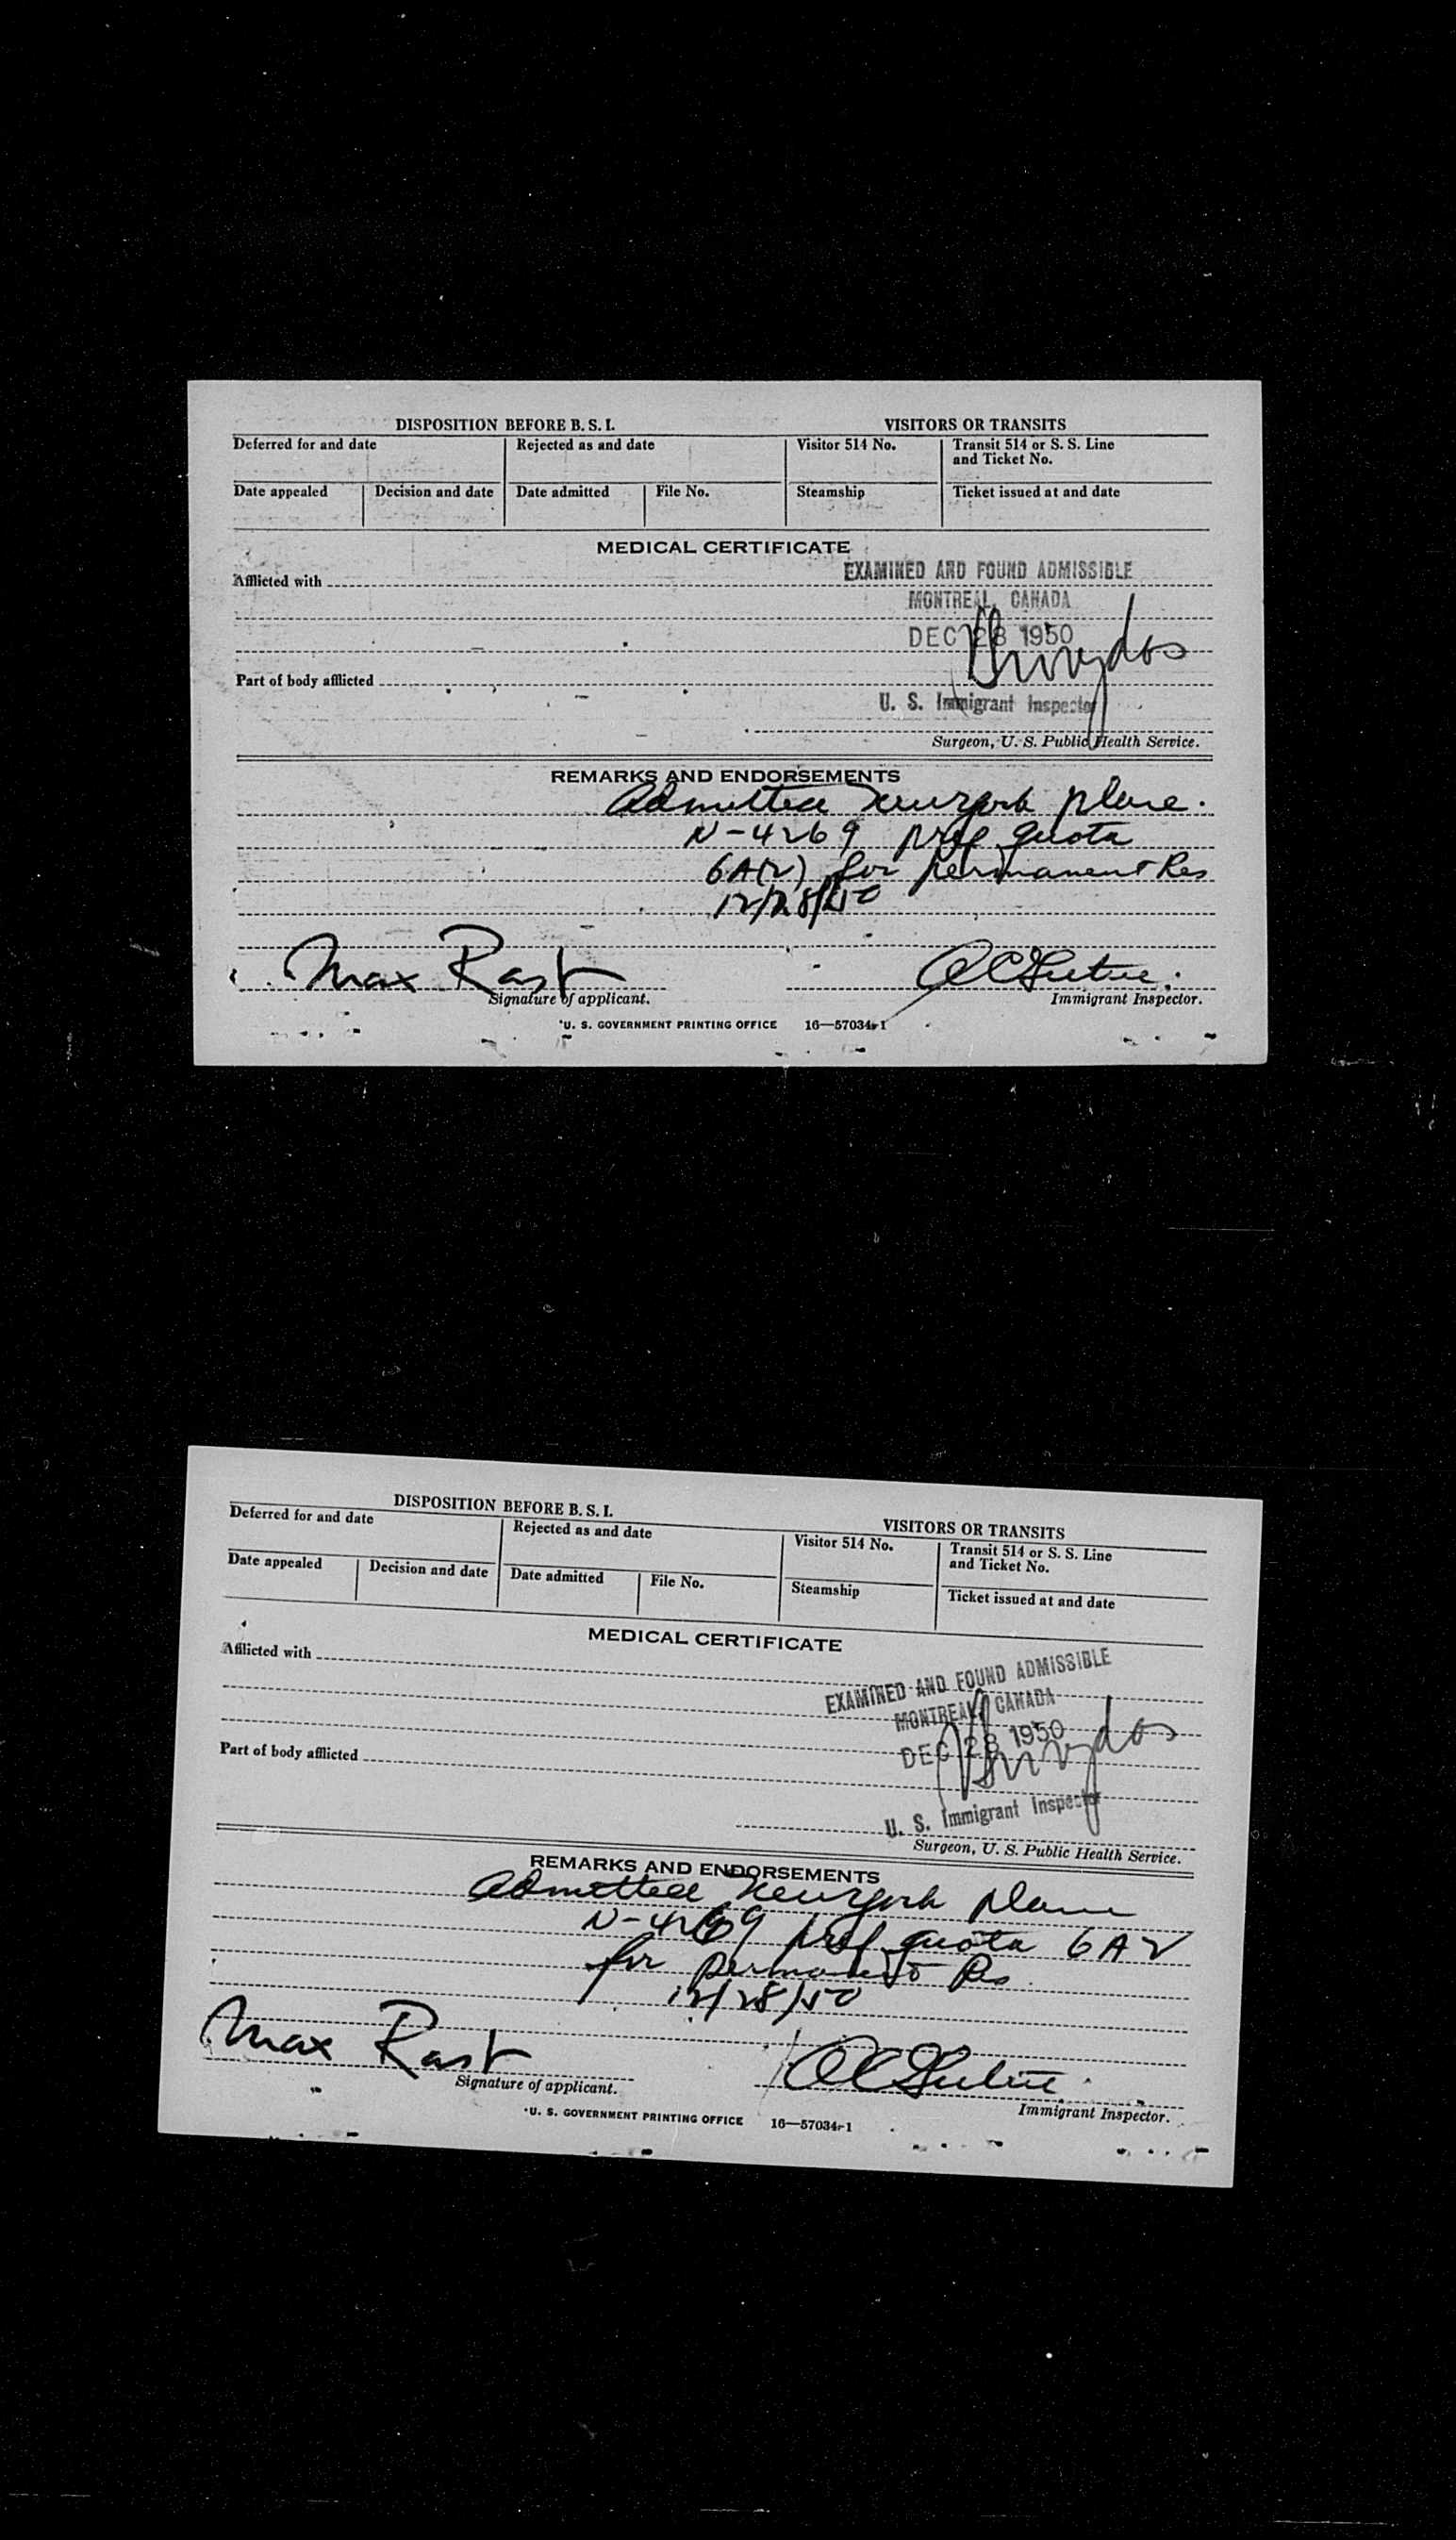 DISPOSITION BEFORE B. S. I.
VISITORS OR TRANSITS
Deferred for and date
Rejected as and date
Visitor 514 No.
Transit 514 or S. S. Line
and Ticket No.
Date appealed
Decision and date
Date admitted
File No.
Steamship
Ticket issued at and date
MEDICAL CERTIFICATE
Afflicted with
EXAMINED AND FOUND ADMISSIBLE
MONTREAL, CANADA
DEC 28 1950
Part of body afflicted
U. S. Immigrant Inspector
Surgeon, U. S. Public Health Service.
REMARKS AND ENDORSEMENTS
Admitted New York plane.
N-4269 pref quota
6A(2) for permanent Res
12/28/50
Max Rast
Signature of applicant.
Immigrant Inspector.
U. S. GOVERNMENT PRINTING OFFICE 16—57034-1
DISPOSITION BEFORE B. S. I.
VISITORS OR TRANSITS
Deferred for and date
Rejected as and date
Visitor 514 No.
Transit 514 or S. S. Line
and Ticket No.
Date appealed
Decision and date
Date admitted
File No.
Steamship
Ticket issued at and date
MEDICAL CERTIFICATE
Afflicted with
EXAMINED AND FOUND ADMISSIBLE
MONTREAL, CANADA
DEC 28 1950
Part of body afflicted
U. S. Immigrant Inspector
Surgeon, U. S. Public Health Service.
REMARKS AND ENDORSEMENTS
Admitted New York plane
N-4269 pref quota 6A2
for permanent Res
12/28/50
Max Rast
Signature of applicant.
Immigrant Inspector.
U. S. GOVERNMENT PRINTING OFFICE 16—57034-1